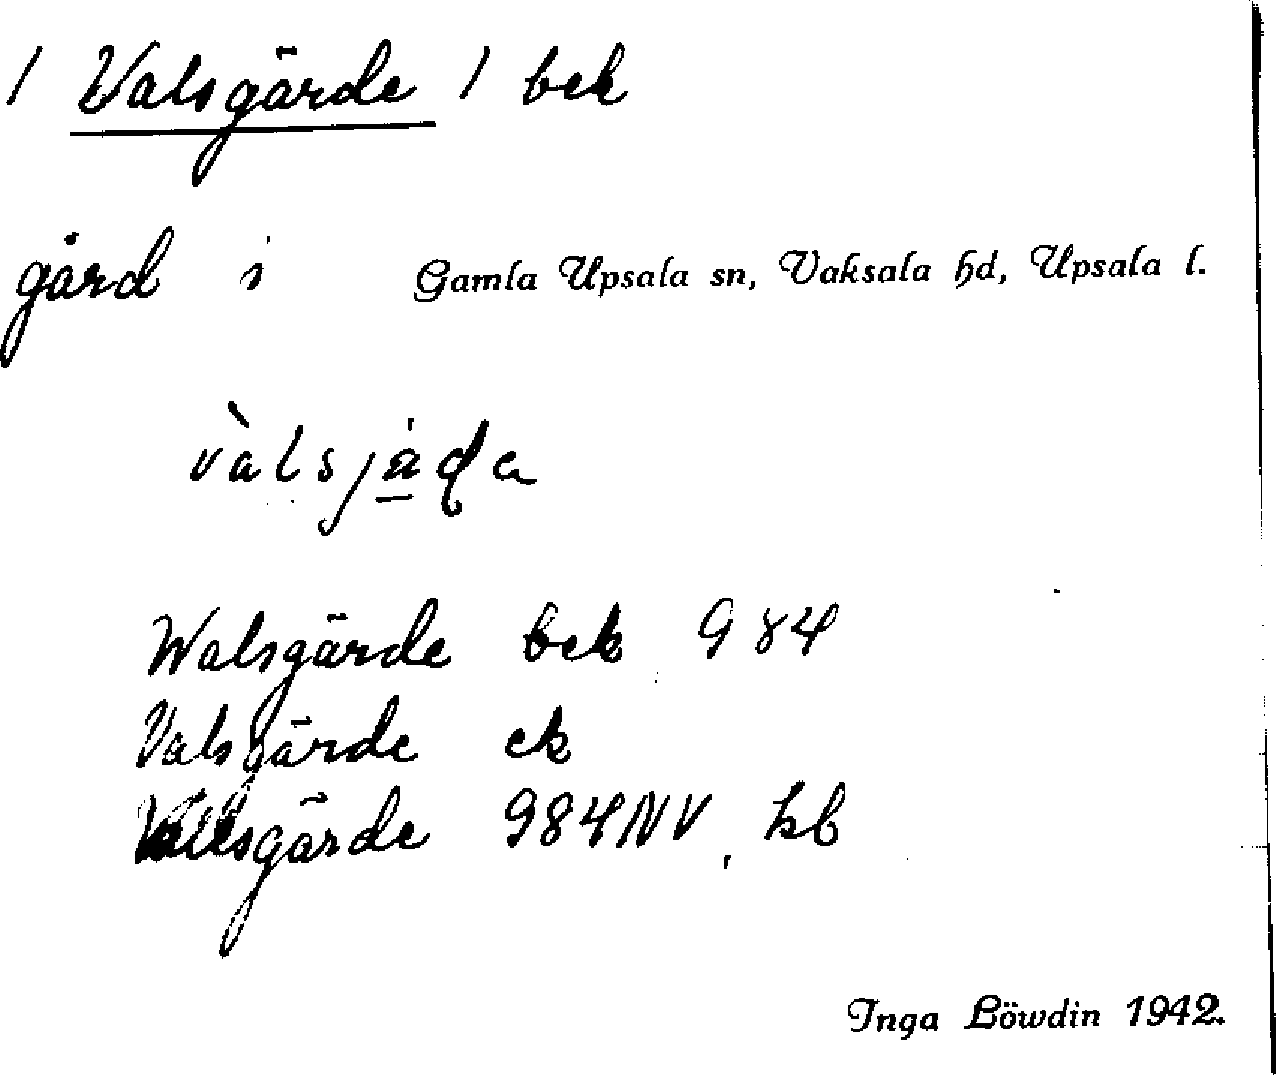 / Valsgärde / bek
gård i Gamla Upsala sn, Vaksala hd, Upsala l.
vàlsjà̱ḍa
Walsgärde bek G 84
Valsgärde ek
Vallsgärde 984NV, kb
Inga Löwdin 1942.